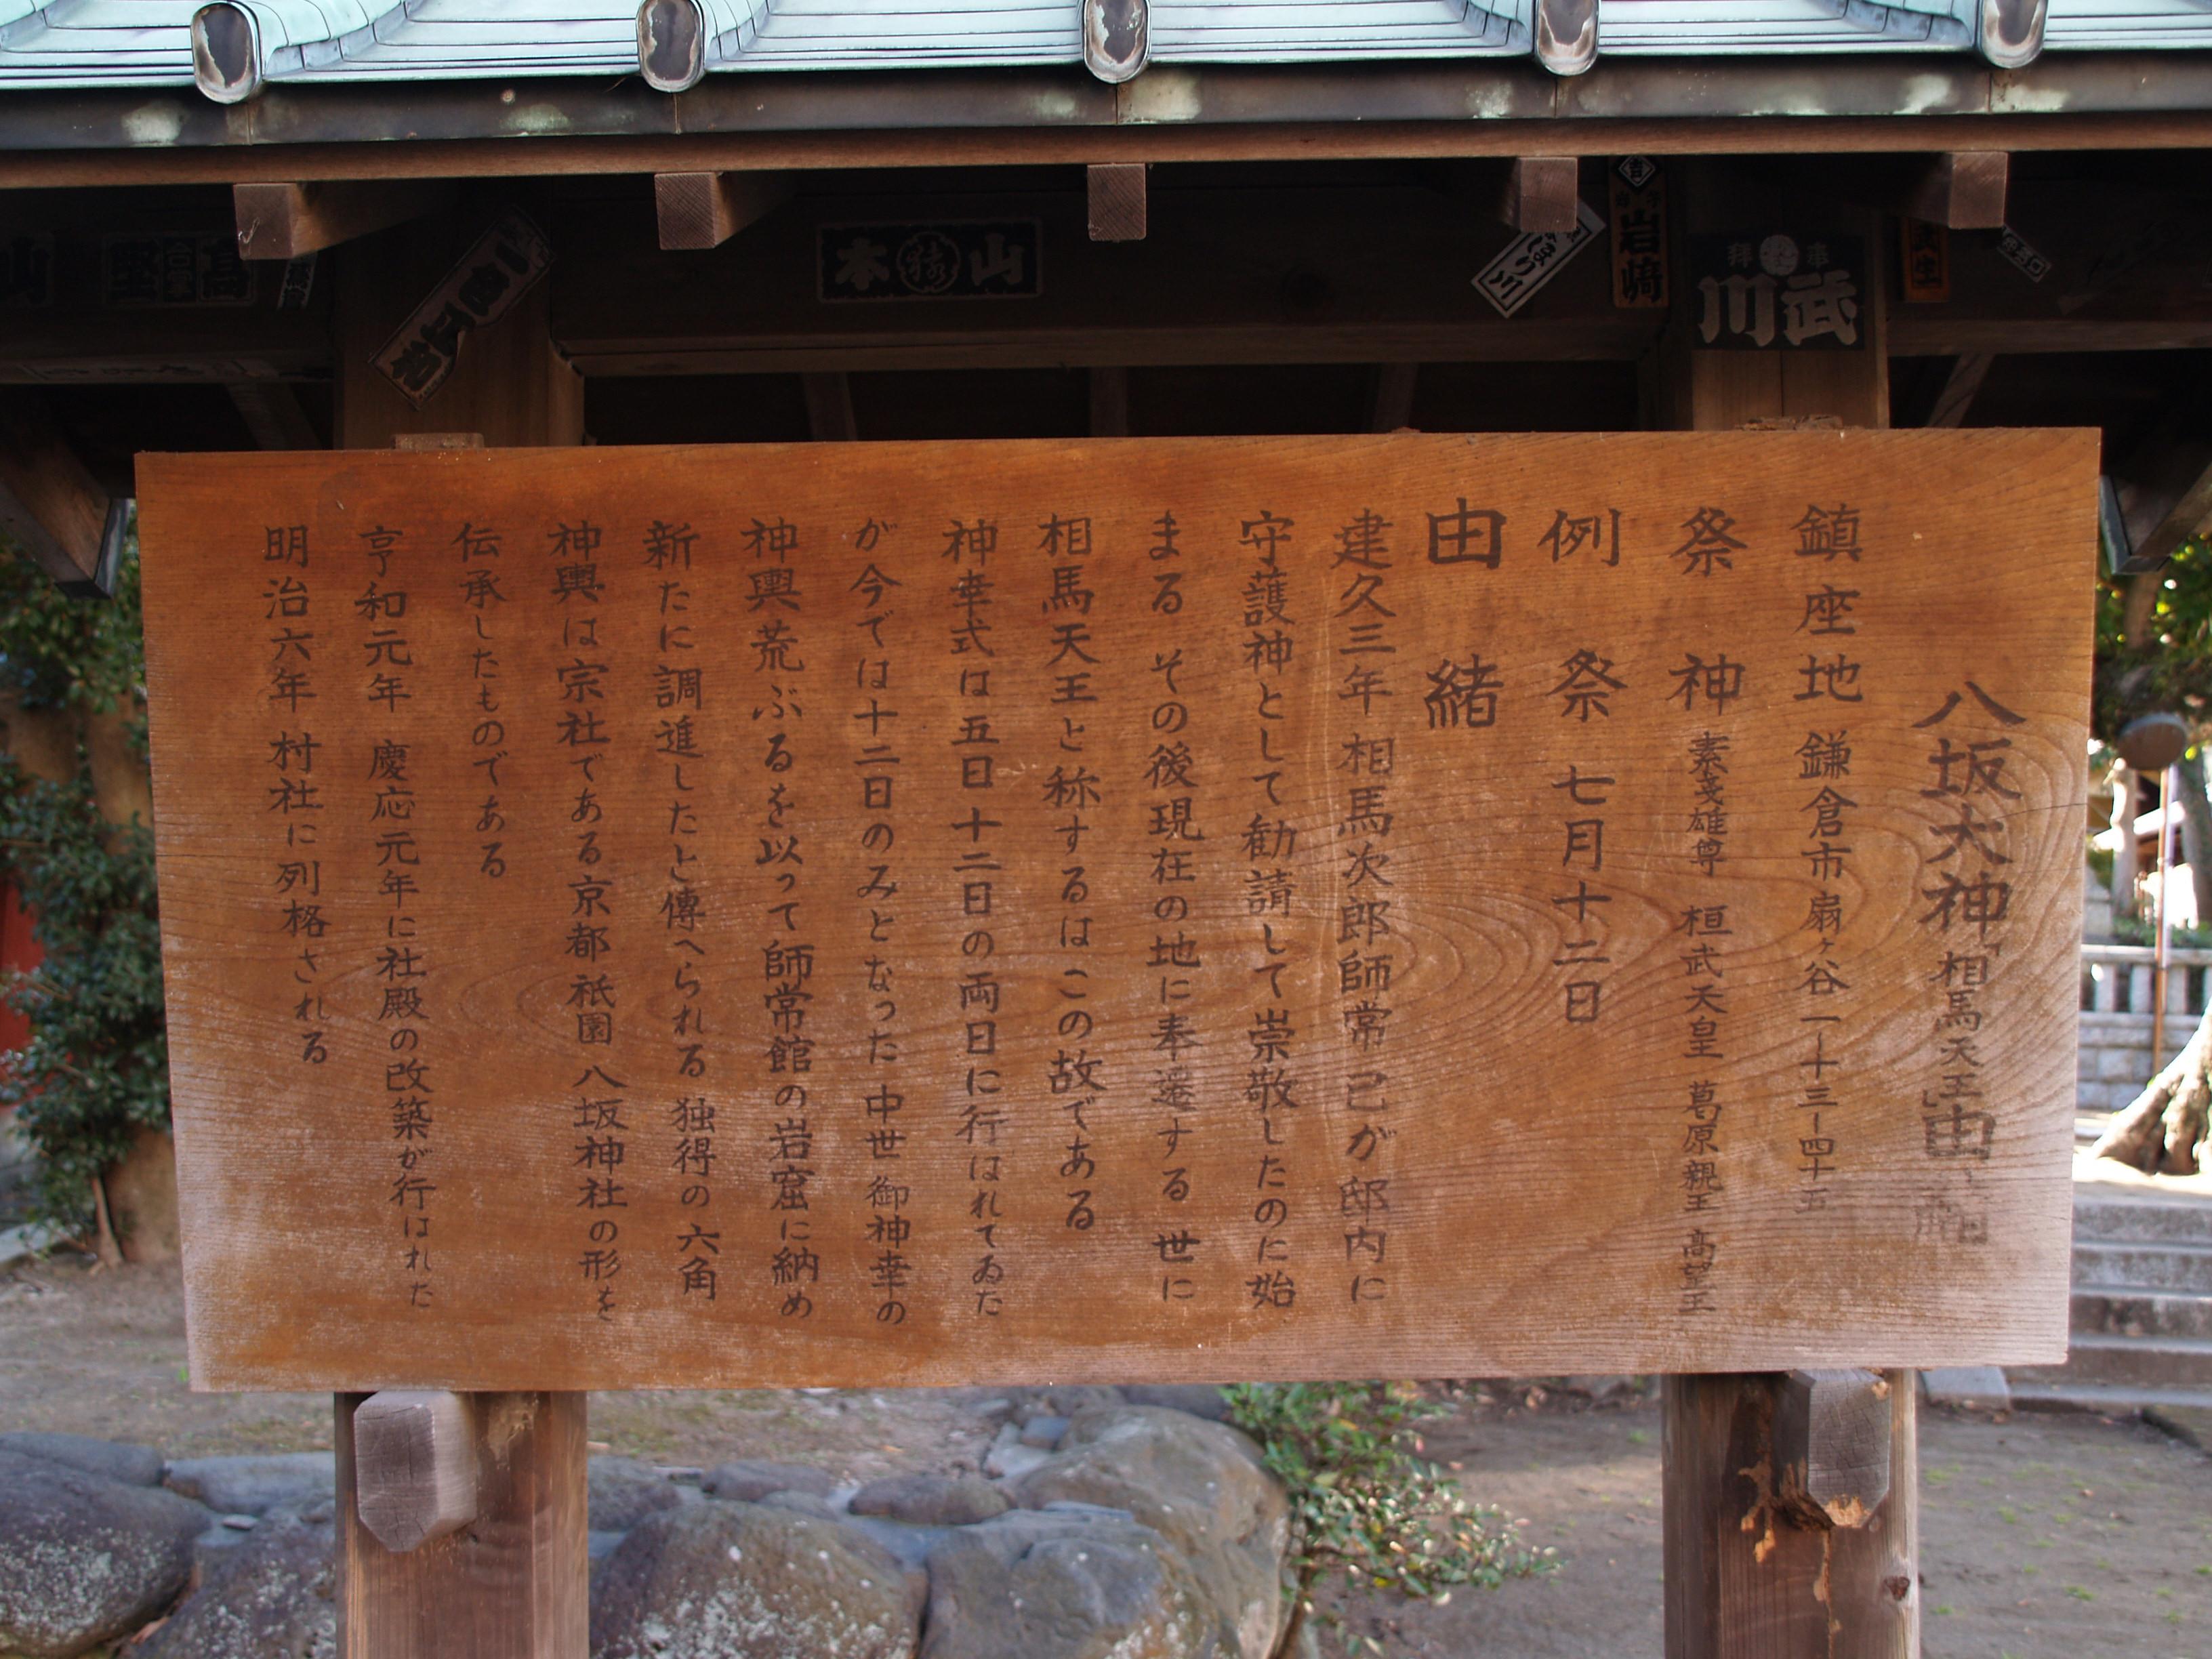 八坂大神「相馬天王」由緒
鎮座地 鎌倉市扇ヶ谷一ー十三ー四十五
祭神 素戔雄尊 桓武天皇 葛原親王 高望王
例祭 七月十二日
由緒
建久三年 相馬次郎師常 己が邸内に
守護神として勧請して崇敬したのに始
まる その後現在の地に奉遷する 世に
相馬天王と称するは この故である
神幸式は五日十二日の両日に行はれてゐた
が今では十二日のみとなった 中世 御神幸の
神輿荒ぶるを以って師常館の岩窟に納め
新たに調進したと傳へられる 独得の六角
神輿は宗社である京都 祇園 八坂神社の形を
伝承したものである
享和元年 慶応元年に社殿の改築が行はれた
明治六年 村社に列格される
山本
岩崎
武川